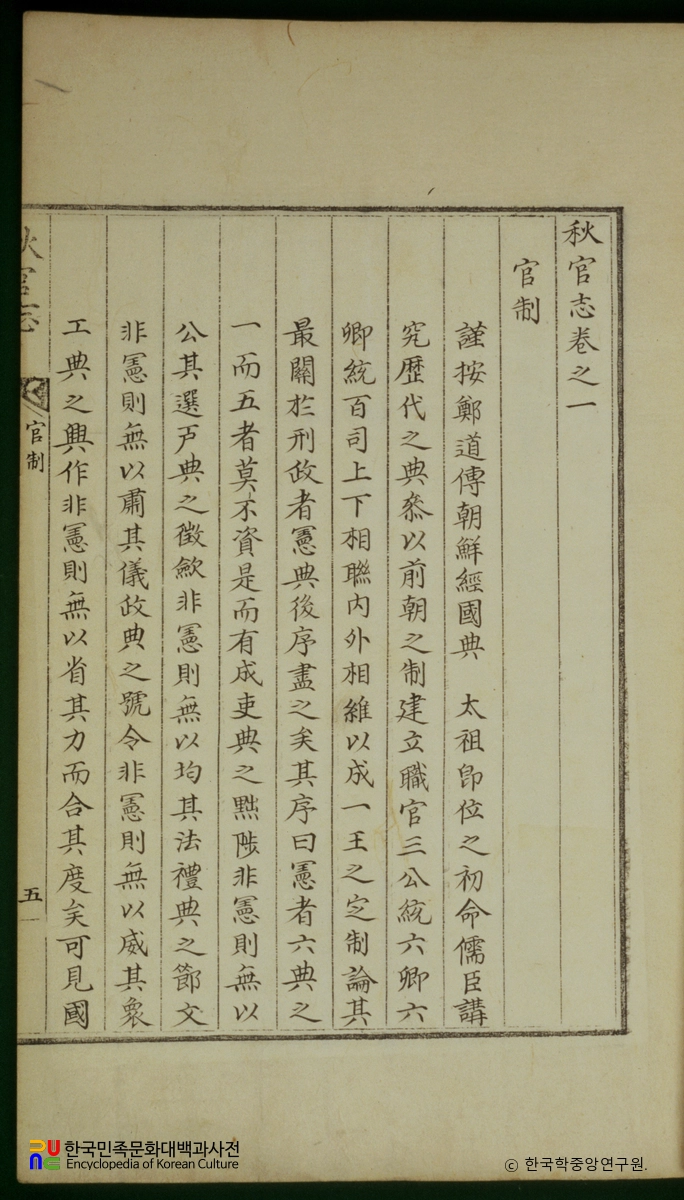 秋官志卷之一
官制
謹按鄭道傳朝鮮經國典　太祖卽位之初命儒臣講
究歷代之典叅以前朝之制建立職官三公統六卿六
卿統百司上下相聯內外相維以成一王之定制論其
最關於刑政者憲典後序盡之矣其序曰憲者六典之
一而五者莫不資是而有成吏典之黜陟非憲則無以
公其選戶典之徵斂非憲則無以均其法禮典之節文
非憲則無以肅其儀政典之號令非憲則無以威其衆
工典之興作非憲則無以省其力而合其度矣可見國
秋官志
官制
五
한국민족문화대백과사전
Encyclopedia of Korean Culture
ⓒ 한국학중앙연구원.